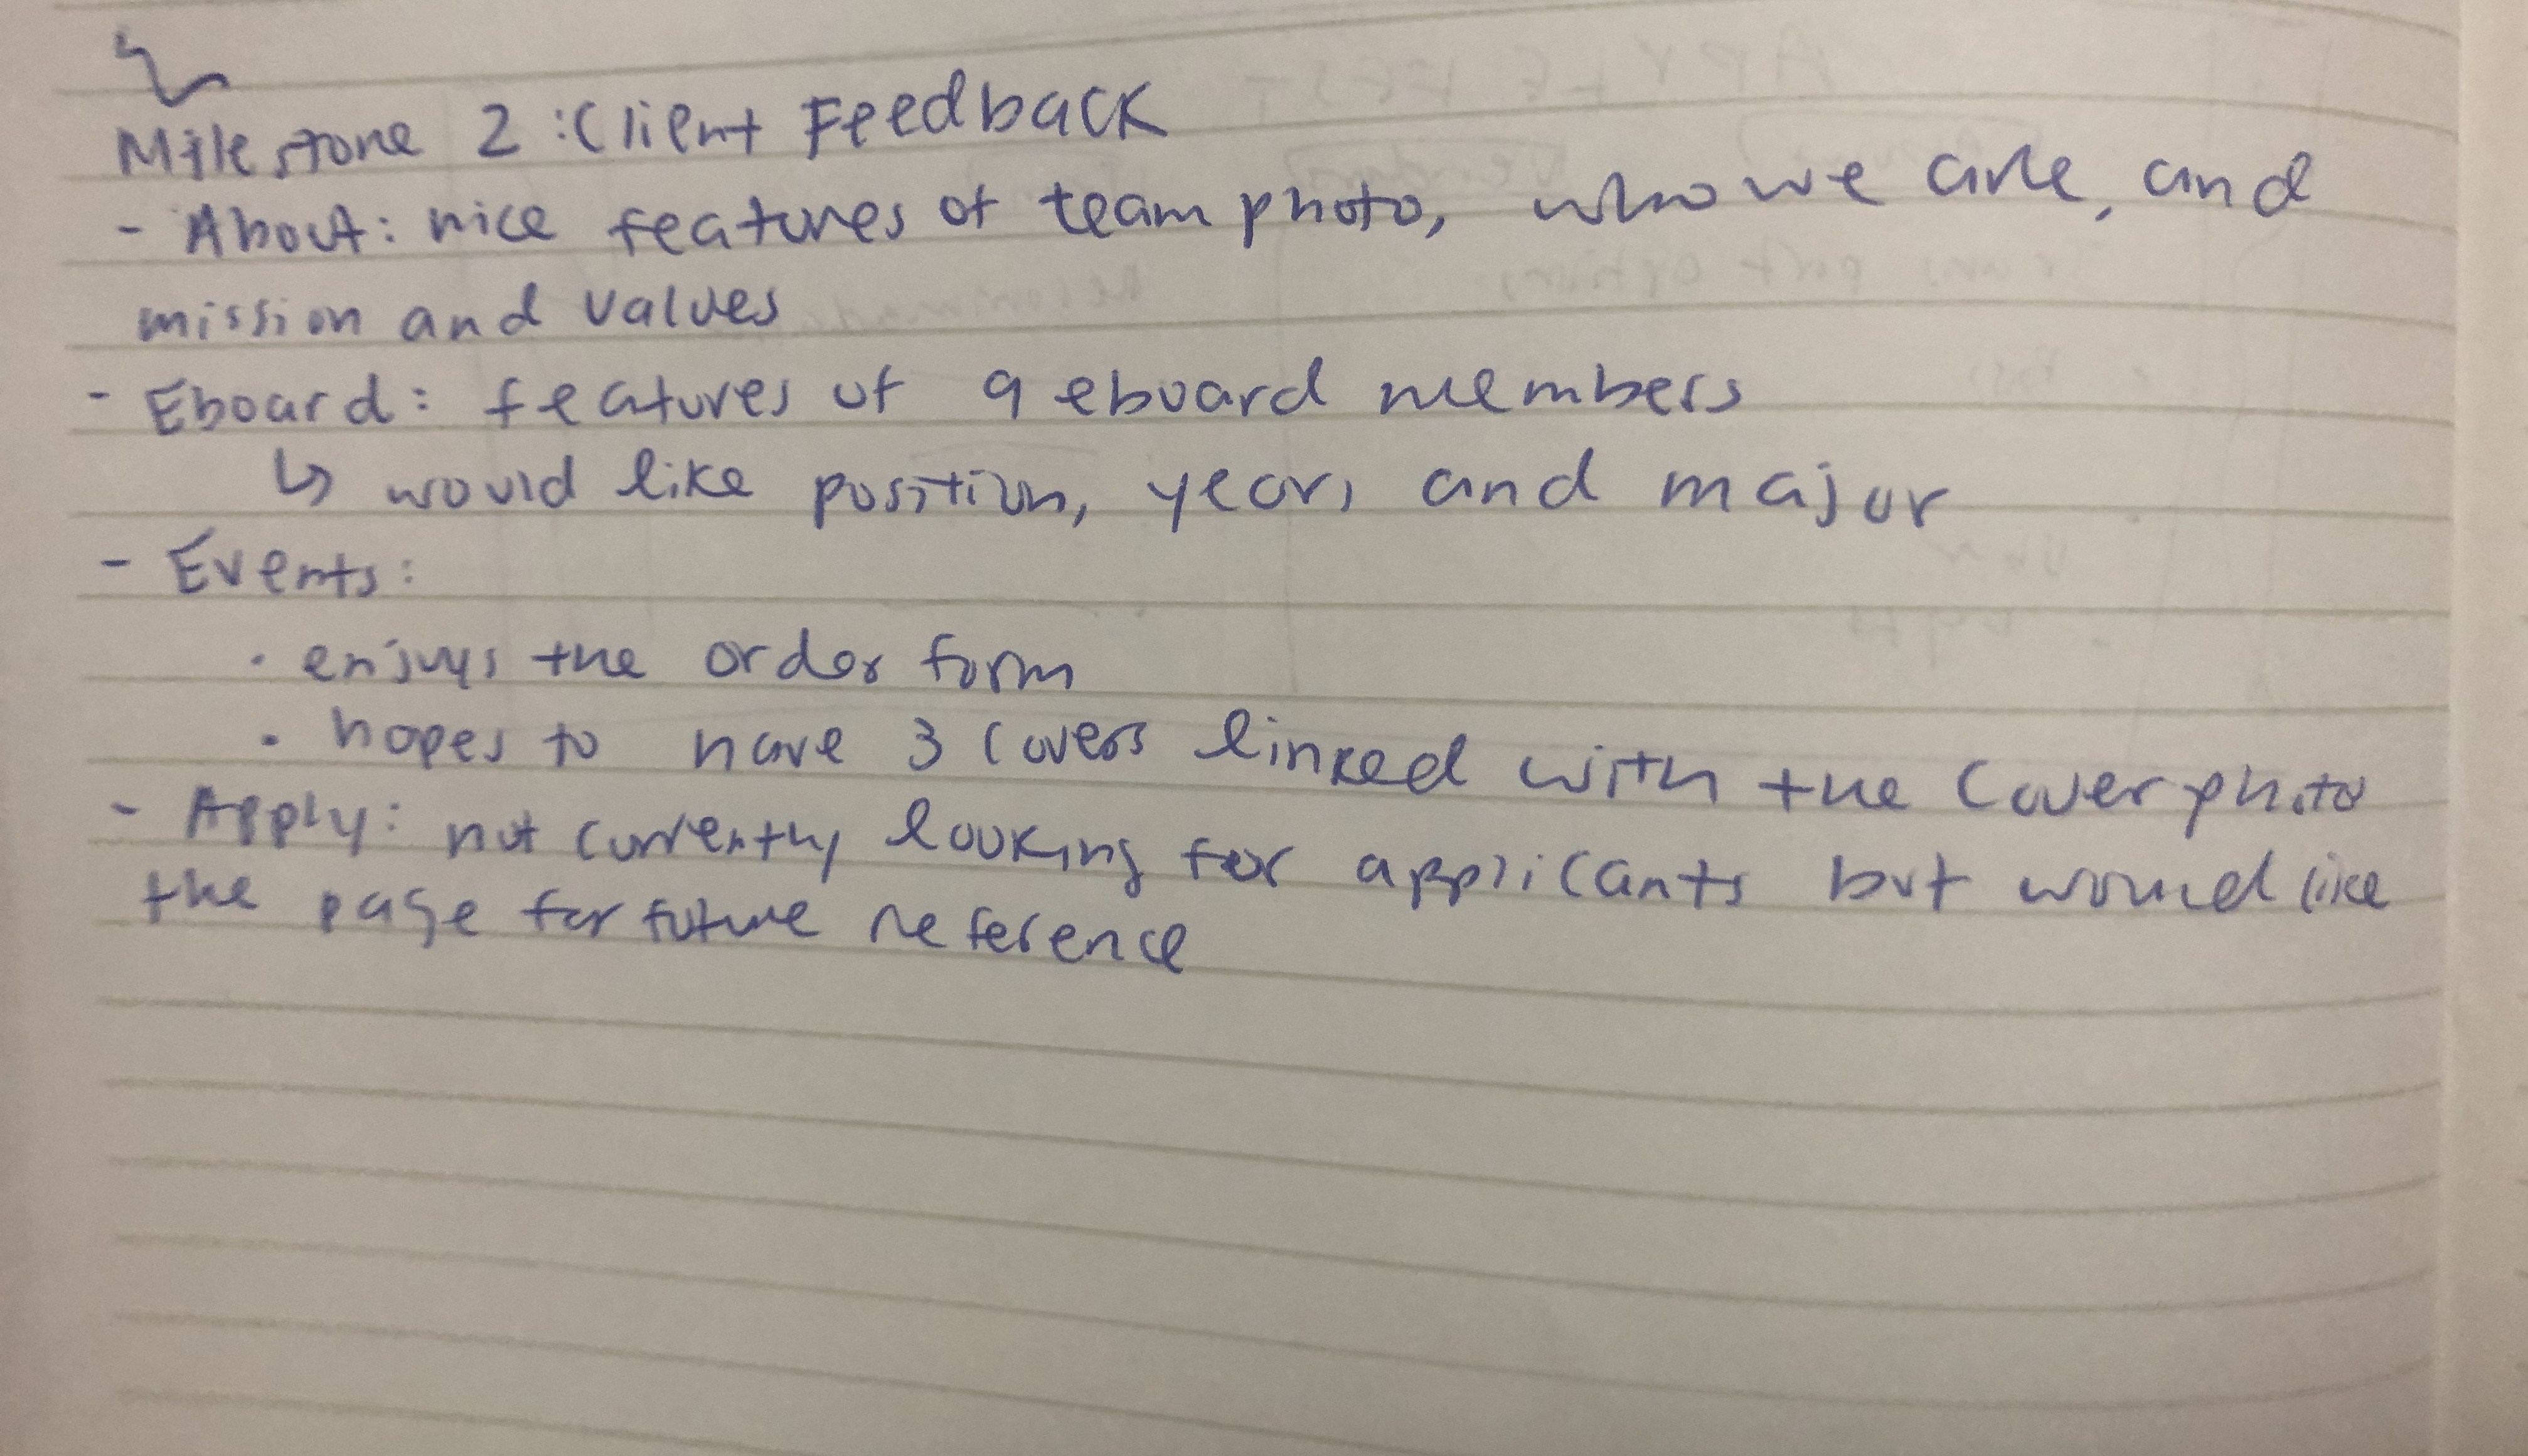 Milestone 2: Client Feedback
- About: nice features of team photo, who we are, and
mission and values
- Eboard: features of 9 eboard members
↳ would like position, year, and major
- Events:
· enjoys the order form
· hopes to have 3 covers linked with the cover photo
- Apply: not currently looking for applicants but would like
the page for future reference